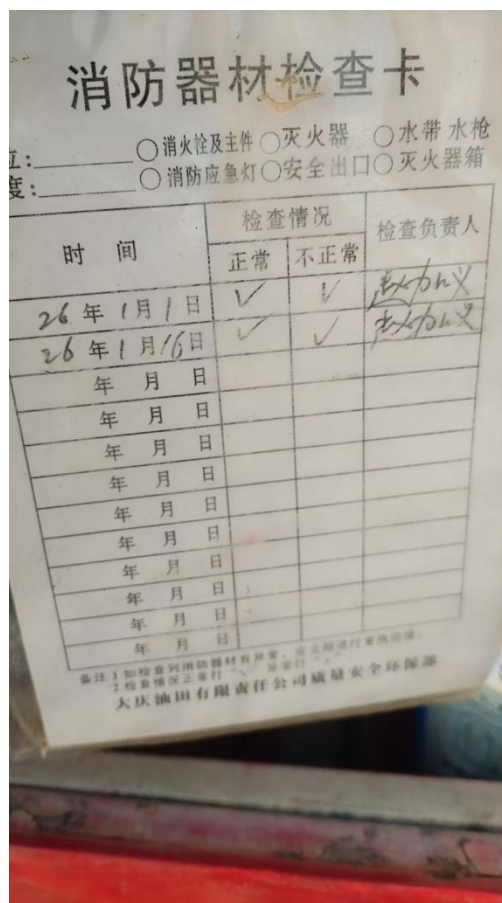 消防器材检查卡
位:________ ○消火栓及主件 ○灭火器 ○水带 水枪
度:________ ○消防应急灯 ○安全出口 ○灭火器箱
时 间 检查情况 检查负责人
正常 不正常
26年1月1日 ✓ ✓
26年1月16日 ✓ ✓
年 月 日
年 月 日
年 月 日
年 月 日
年 月 日
年 月 日
年 月 日
年 月 日
年 月 日
年 月 日
备注1如检查到消防器材有异常,应立即进行更换维修。
2检查情况正常打“✓”异常打“×”
大庆油田有限责任公司质量安全环保部